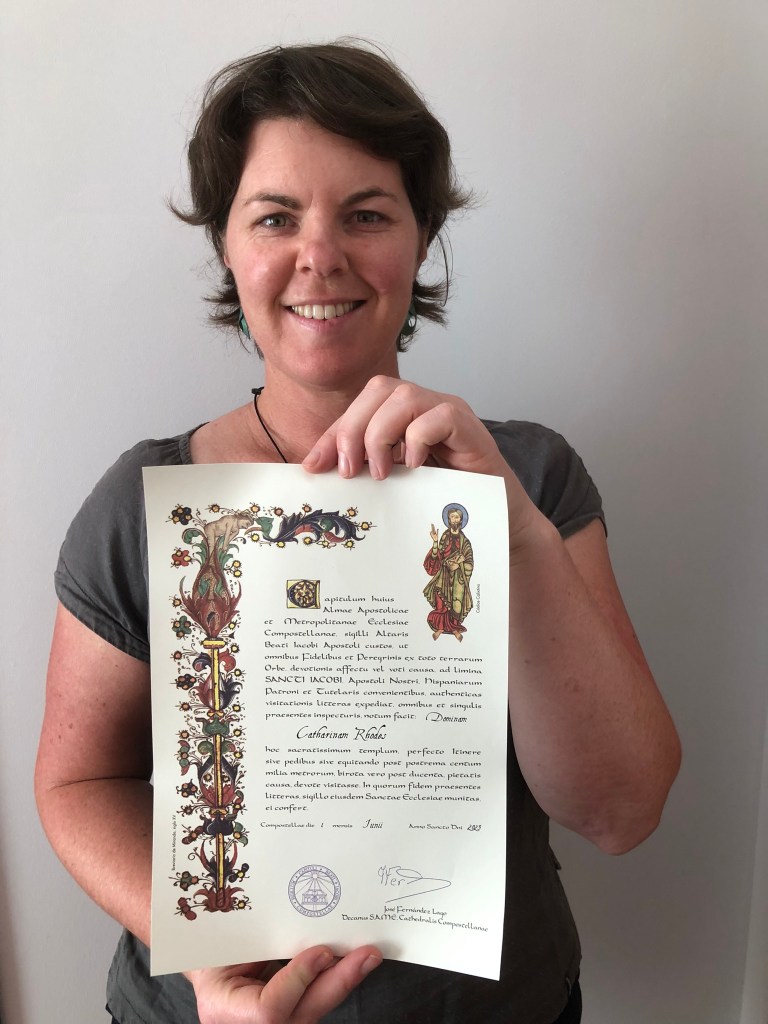 Capitulum huius
Almae Apostolicae
et Metropolitanae Ecclesiae
Compostellanae, sigilli Altaris
Beati Iacobi Apostoli custos, ut
omnibus Fidelibus et Peregrinis ex toto terrarum
Orbe, devotionis affectu vel voti causa, ad limina
SANCTI IACOBI, Apostoli Nostri, Hispaniarum
Patroni et Tutelaris convenientibus, authenticas
visitationis litteras expediat, omnibus et singulis
praesentes inspecturis, notum facit: Dominam
Catharinam Rhodes
hoc sacratissimum templum, perfecto Itinere
sive pedibus sive equitando post postrema centum
milia metrorum, birota vero post ducenta, pietatis
causa, devote visitasse. In quorum fidem praesentes
litteras, sigillo eiusdem Sanctae Ecclesiae munitas,
ei confert.
Compostellae die 1 mensis Junii Anno Sancto Dni 2023
José Fernández Lago
Decanus S.A.M.E. Cathedralis Compostellanae
Códice Calixtino